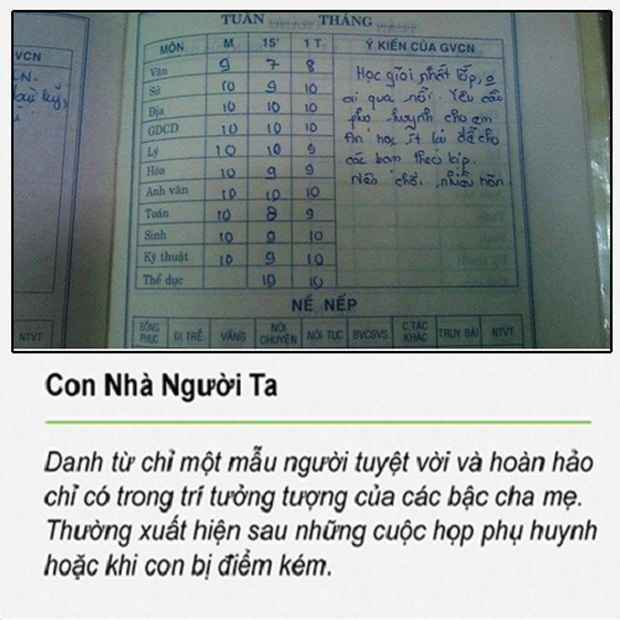 TUẦN THÁNG
VCN
MÔN M 15' 1 T Ý KIẾN CỦA GVCN
Văn 9 7 8
Sử 10 9 10
Địa 10 10 10
GDCD 10 10 10
Lý 10 10 9
Hóa 10 9 9
Anh văn 10 10 10
Toán 10 8 9
Sinh 10 9 10
Kỹ thuật 10 9 10
Thể dục 10 10
Học giỏi nhất lớp, o
ai qua nổi. Yêu cầu
phụ huynh cho em
học ít lại để cho
các bạn theo kịp.
Nên chơi nhiều hơn
NỀ NẾP
NTVT ĐỒNG PHỤC ĐI TRỄ VẮNG NÓI CHUYỆN NÓI TỤC BVCSVS C.TÁC KHÁC TRUY BÀI NTVT
Con Nhà Người Ta
Danh từ chỉ một mẫu người tuyệt vời và hoàn hảo
chỉ có trong trí tưởng tượng của các bậc cha mẹ.
Thường xuất hiện sau những cuộc họp phụ huynh
hoặc khi con bị điểm kém.